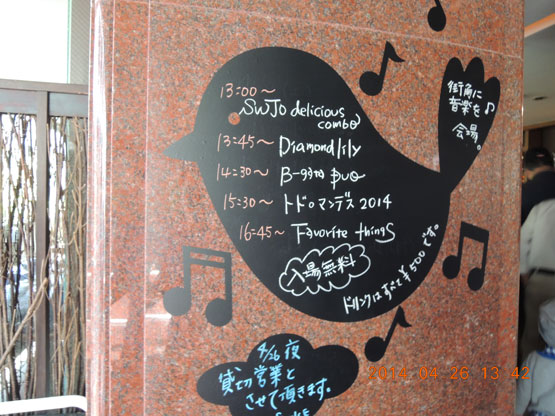 13:00〜
SWJO delicious
combo
13:45〜 Diamond lily
14:30〜 B-93M Duo
15:30〜 トド。マンデス 2014
16:45〜 Favorite things
入場無料
ドリンクはすべて¥500です。
街角に
音楽を♪
会場。
4/26 夜
貸切営業と
させて頂きます。
2014 04 26 13 42